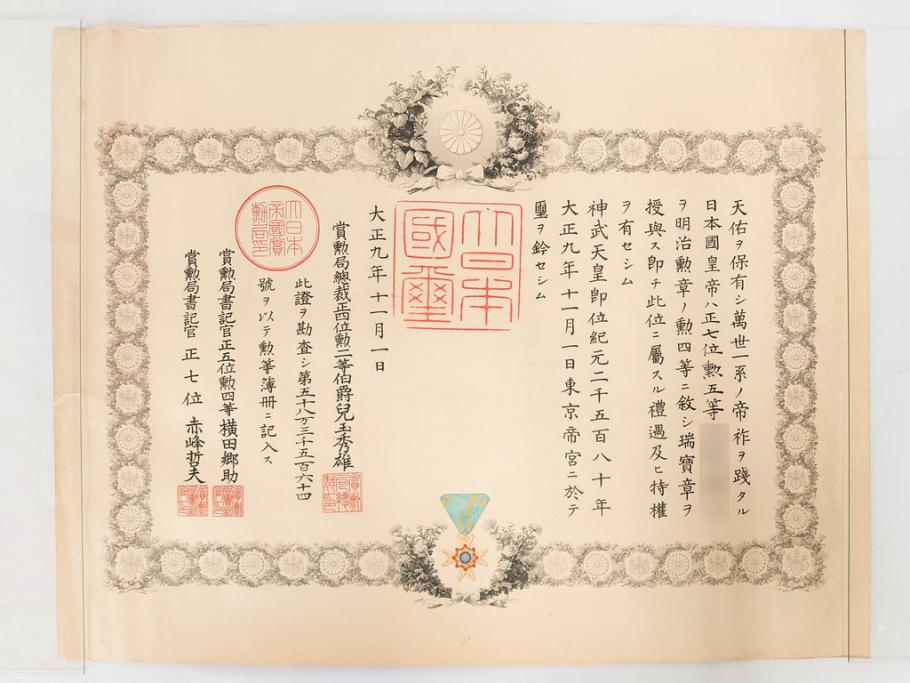 天佑ヲ保有シ萬世一系ノ帝祚ヲ踐タル
日本國皇帝ハ正七位勲五等
ヲ明治勲章ノ勲四等ニ敘シ瑞寶章ヲ
授與ス即チ此位ニ屬スル禮遇及ヒ特權
ヲ有セシム
神武天皇即位紀元二千五百八十年
大正九年十一月一日東京帝宮ニ於テ
璽ヲ鈐セシム
大日本
國璽
大正九年十一月一日
賞勲局總裁正四位勲二等伯爵兒玉秀雄
此證ヲ勘査シ第五十八万三千五百六十四
號ヲ以テ勲等簿册ニ記入ス
大日本
帝國賞
勲局印
賞勲局書記官正五位勲四等横田郷助
賞勲局書記官正七位赤峰哲夫